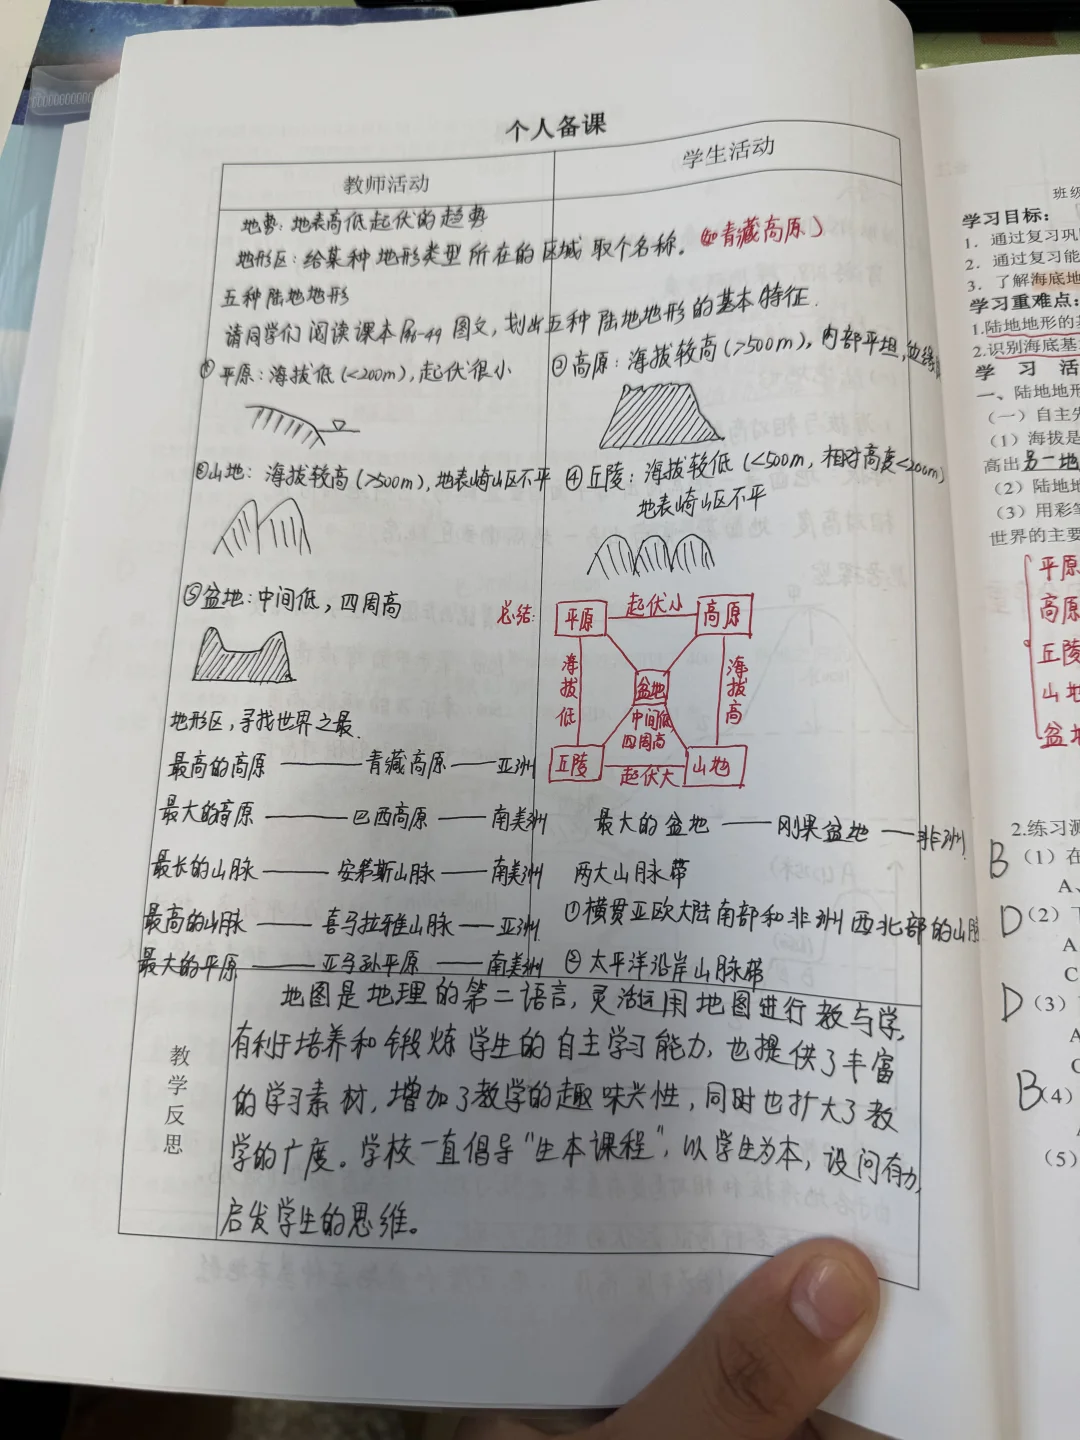 个人备课
教师活动
学生活动
地势：地表高低起伏的趋势
地形区：给某种地形类型所在的区域取个名称。（如青藏高原）
五种陆地地形
请同学们阅读课本 图文，划出五种陆地地形的基本特征.
①平原：海拔低(<200m)，起伏很小
②高原：海拔较高(>500m)，内部平坦，边缘
③山地：海拔较高(>500m)，地表崎岖不平
④丘陵：海拔较低(<500m，相对高度<200m)
地表崎岖不平
⑤盆地：中间低，四周高
总结：
平原
起伏小
高原
海拔低
盆地
中间低
四周高
海拔高
丘陵
起伏大
山地
地形区，寻找世界之最.
最高的高原——青藏高原——亚洲
最大的高原——巴西高原——南美洲
最长的山脉——安第斯山脉——南美洲
最高的山脉——喜马拉雅山脉——亚洲
最大的平原——亚马孙平原——南美洲
最大的盆地——刚果盆地——非洲
两大山脉带
①横贯亚欧大陆南部和非洲西北部的山脉
②太平洋沿岸山脉带
教学反思
地图是地理的第二语言，灵活运用地图进行教与学，
有利于培养和锻炼学生的自主学习能力，也提供了丰富
的学习素材，增加了教学的趣味兴性，同时也扩大了教
学的广度。学校一直倡导“生本课程”，以学生为本，设问有力，
启发学生的思维。
班级
学习目标：
1. 通过复习巩
2. 通过复习能
3. 了解海底地
学习重难点：
1.陆地地形的基
2.识别海底基
学 习 活
一、陆地地形
（一）自主先
（1）海拔是
高出另一地
（2）陆地地
（3）用彩笔
世界的主要
平原
高原
丘陵
山地
盆地
2.练习测
B（1）在
A、
D（2）下
A
C
D（3）
A
C
B（4）
（5）